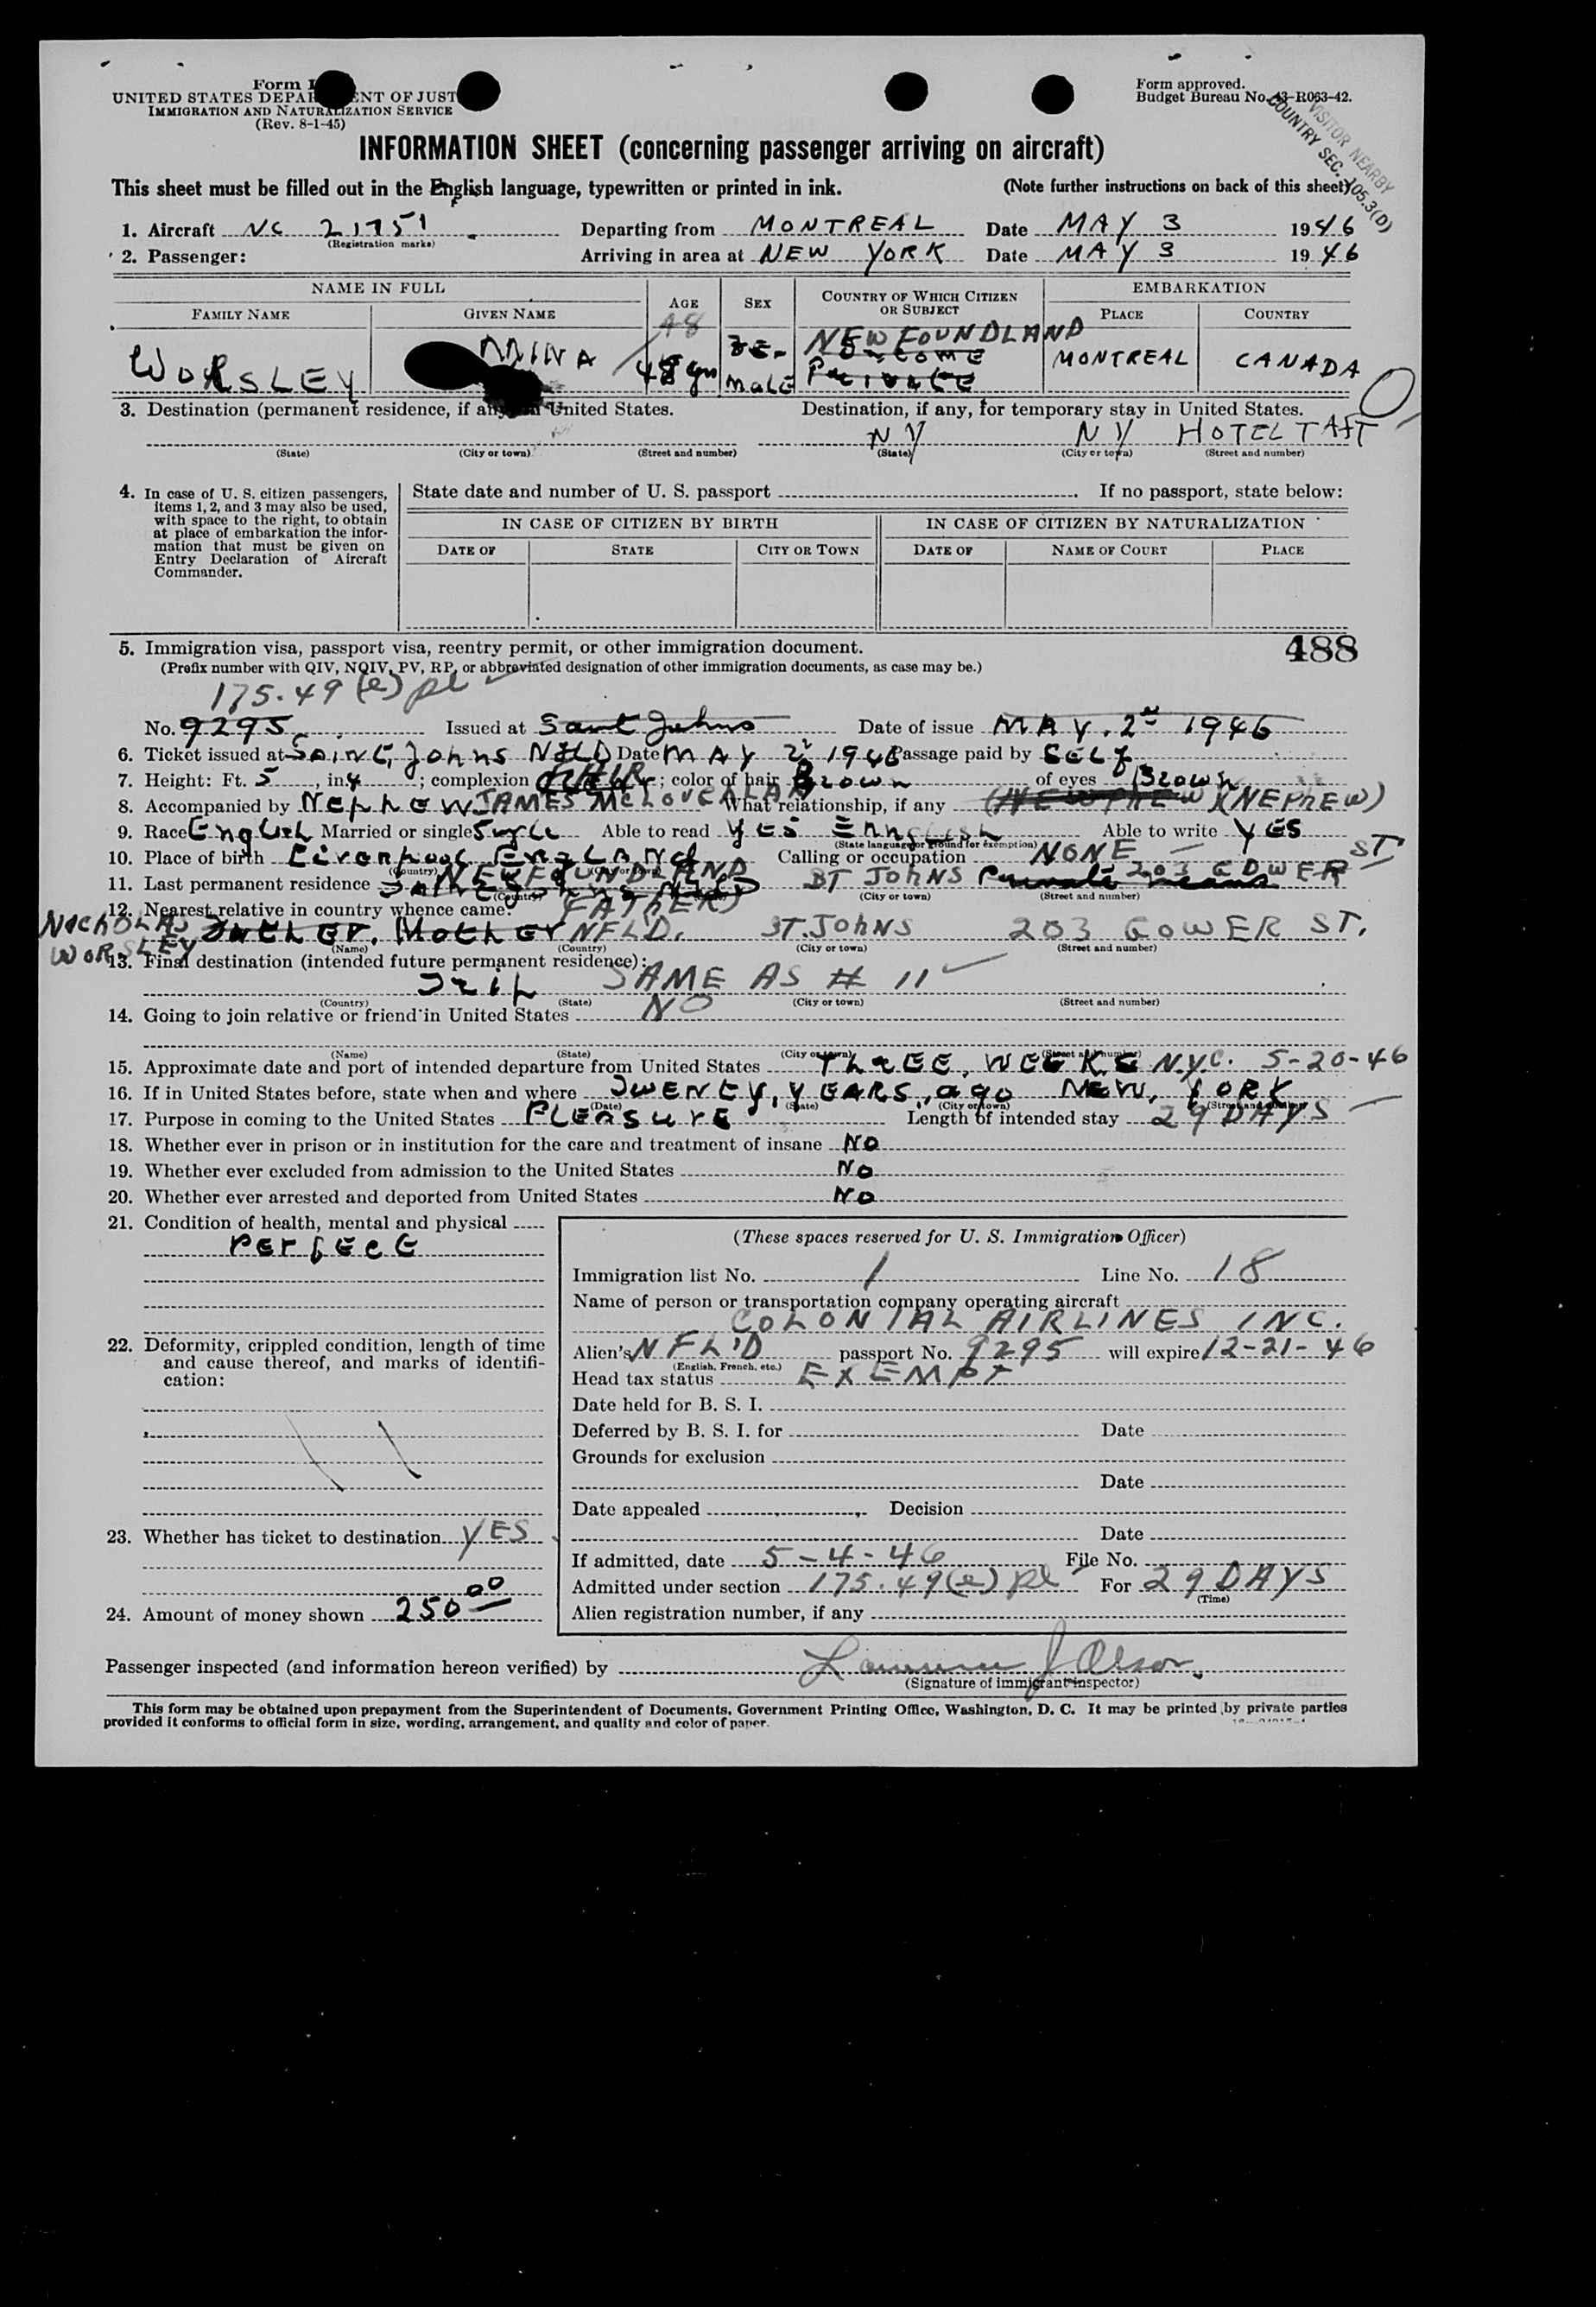 Form I
UNITED STATES DEPA ENT OF JUST
IMMIGRATION AND NATURALIZATION SERVICE
(Rev. 8-1-45)
Form approved.
Budget Bureau No. 43-R063-42.
VISITOR NEARBY
COUNTRY SEC. 105.3(D)
INFORMATION SHEET (concerning passenger arriving on aircraft)
This sheet must be filled out in the English language, typewritten or printed in ink. (Note further instructions on back of this sheet)
1. Aircraft NC 21751 Departing from MONTREAL Date MAY 3 1946
(Registration marks)
2. Passenger: Arriving in area at NEW YORK Date MAY 3 1946
NAME IN FULL AGE SEX COUNTRY OF WHICH CITIZEN OR SUBJECT EMBARKATION
FAMILY NAME GIVEN NAME PLACE COUNTRY
48
WORSLEY MINA 48 yrs FE-MALE NEWFOUNDLAND MONTREAL CANADA
INCOME
PRIVATE
3. Destination (permanent residence, if any, in United States. Destination, if any, for temporary stay in United States.
NY NY HOTEL TAFT
(State) (City or town) (Street and number) (State) (City or town) (Street and number)
4. In case of U. S. citizen passengers, items 1, 2, and 3 may also be used, with space to the right, to obtain at place of embarkation the information that must be given on Entry Declaration of Aircraft Commander.
State date and number of U. S. passport . If no passport, state below:
IN CASE OF CITIZEN BY BIRTH IN CASE OF CITIZEN BY NATURALIZATION
DATE OF STATE CITY OR TOWN DATE OF NAME OF COURT PLACE
5. Immigration visa, passport visa, reentry permit, or other immigration document. 488
(Prefix number with QIV, NQIV, PV, RP, or abbreviated designation of other immigration documents, as case may be.)
175.49(e) pl
No. 9295 Issued at Saint Johns Date of issue MAY. 2nd 1946
6. Ticket issued at Saint, Johns NFLD Date MAY 2 1946 Passage paid by SELF
7. Height: Ft. 5, in. 4; complexion FAIR; color of hair Brown of eyes Brown
8. Accompanied by NEPHEW JAMES What relationship, if any (NEPHEW)
9. Race English Married or single Single Able to read YES English Able to write YES
(State language or ground for exemption)
10. Place of birth Liverpool England Calling or occupation NONE
(Country) (City or town)
11. Last permanent residence NEWFOUNDLAND ST JOHNS Private means 203 GOWER ST
(Country) (City or town) (Street and number)
12. Nearest relative in country whence came: (FATHER)
NICHOLAS WORSLEY Father, Mother NFLD. ST. JOHNS 203 GOWER ST.
(Name) (Country) (City or town) (Street and number)
13. Final destination (intended future permanent residence):
SAME AS # 11
(Country) (State) (City or town) (Street and number)
14. Going to join relative or friend in United States NO
(Name) (State) (City or town) (Street and number)
15. Approximate date and port of intended departure from United States THREE, WEEKS N.Y.C. 5-20-46
16. If in United States before, state when and where TWENTY, YEARS, ago NEW, YORK
(Date) (State) (City or town) (Street and number)
17. Purpose in coming to the United States PLEASURE Length of intended stay 29 DAYS
18. Whether ever in prison or in institution for the care and treatment of insane NO
19. Whether ever excluded from admission to the United States NO
20. Whether ever arrested and deported from United States NO
21. Condition of health, mental and physical
PERFECT
22. Deformity, crippled condition, length of time and cause thereof, and marks of identification:
23. Whether has ticket to destination YES
24. Amount of money shown 250 00
(These spaces reserved for U. S. Immigration Officer)
Immigration list No. 1 Line No. 18
Name of person or transportation company operating aircraft
COLONIAL AIRLINES INC.
Alien's NFL'D passport No. 9295 will expire 12-21-46
(English, French, etc.)
Head tax status EXEMPT
Date held for B. S. I.
Deferred by B. S. I. for Date
Grounds for exclusion
Date
Date appealed Decision
Date
If admitted, date 5-4-46 File No.
Admitted under section 175.49(e) pl For 29 DAYS
(Time)
Alien registration number, if any
Passenger inspected (and information hereon verified) by Lawrence J Olson
(Signature of immigrant inspector)
This form may be obtained upon prepayment from the Superintendent of Documents, Government Printing Office, Washington, D. C. It may be printed by private parties
provided it conforms to official form in size, wording, arrangement, and quality and color of paper.